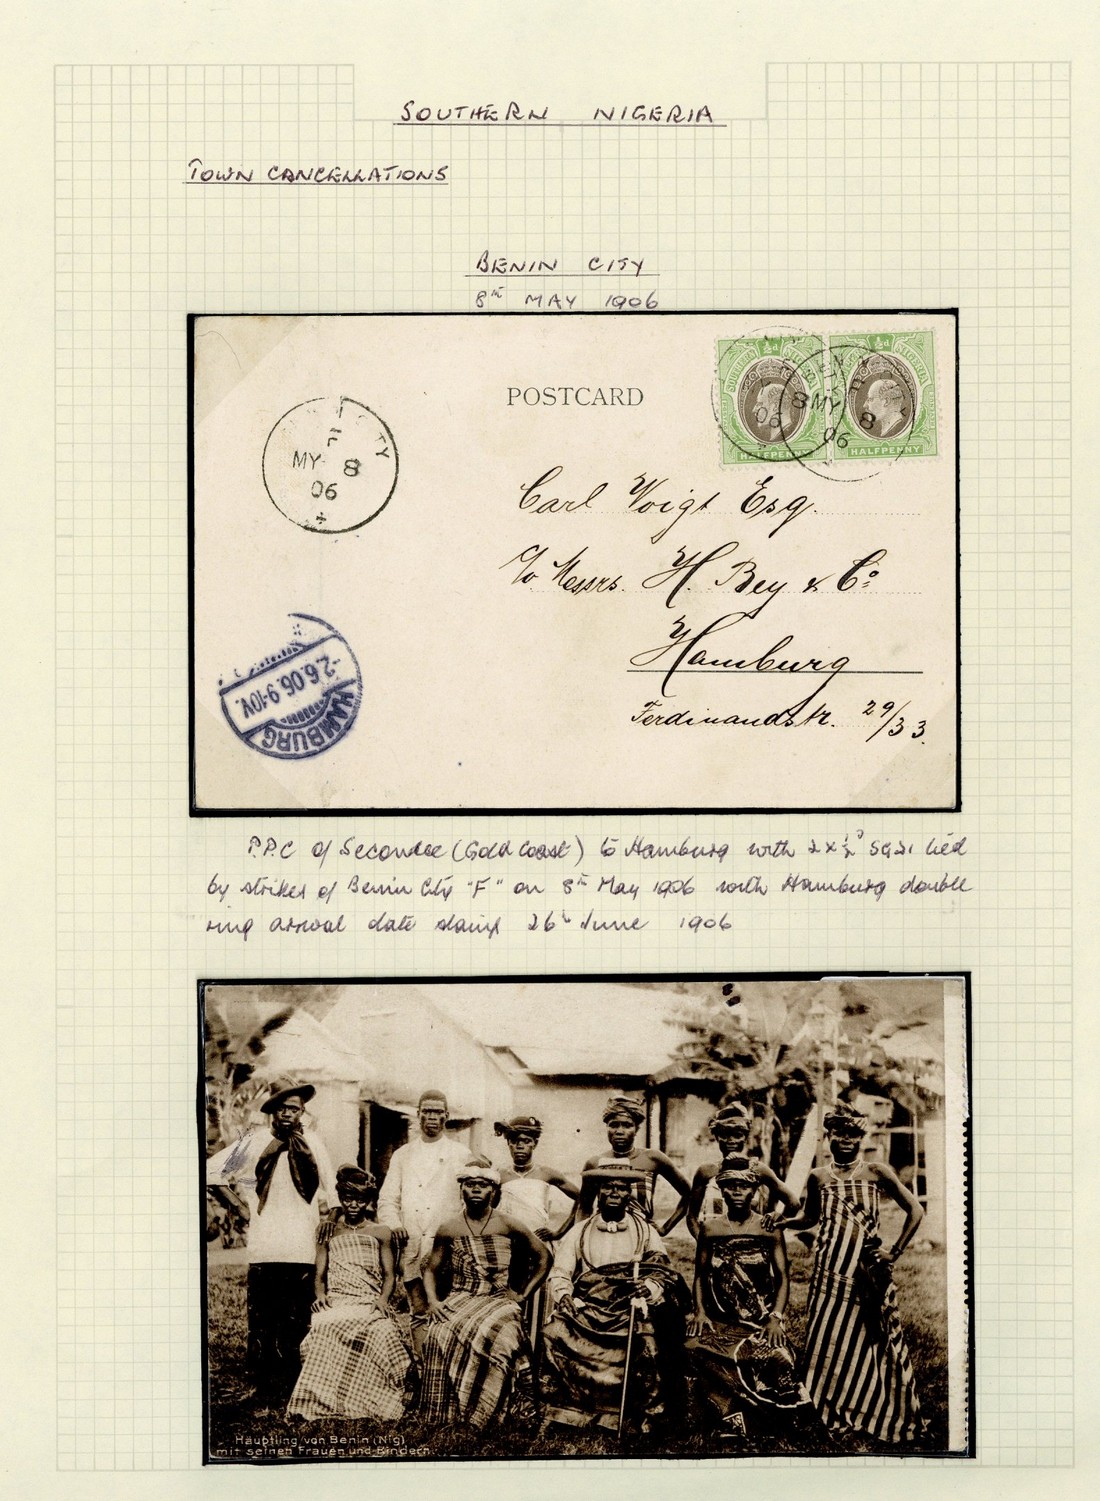 SOUTHERN NIGERIA
TOWN CANCELLATIONS
BENIN CITY
8th MAY 1906
POSTCARD
SOUTHERN ½d NIGERIA
HALFPENNY
½d NIGERIA
HALFPENNY
8 MY
06
8
06
CITY
F
MY 8
06
Carl Voigt Esq.
c/o Messrs. H. Bey & Co
Hamburg
Ferdinandstr. 29/33.
HAMBURG
-2.6.06.9-10V.
P.P.C of Secondee (Gold Coast) to Hamburg with 2 x ½D SG21 tied
by strikes of Benin City "F" on 8th May 1906 with Hamburg double
ring arrival date stamp 26th June 1906
Häuptling von Benin (Nig)
mit seinen Frauen und Bindern.